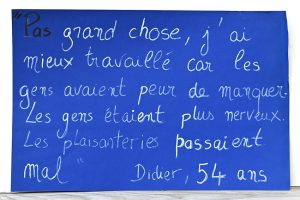 "Pas grand chose, j'ai
mieux travaillé car les
gens avaient peur de manquer.
Les gens étaient plus nerveux.
Les plaisanteries passaient
mal" Didier, 54 ans